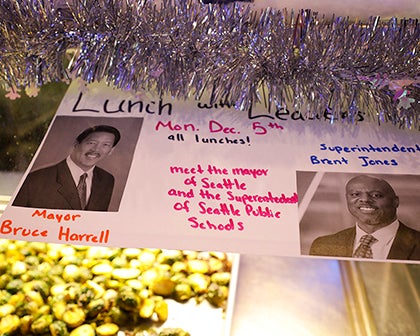 Lunch with Leaders
Mon. Dec. 5th
all lunches!
Superintendent
Brent Jones
meet the mayor
of Seattle
and the Superintendent
of Seattle Public
Schools
Mayor
Bruce Harrell